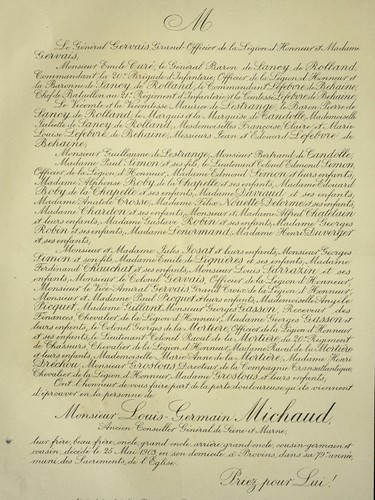 M
Le Général Gervais, Grand-Officier de la Légion d'Honneur et Madame
Gervais,
Monsieur Emile Curé, le Général Baron de Lancy de Rolland,
Commandant la 20e Brigade d'Infanterie, Officier de la Légion d'Honneur et
la Baronne de Lancy de Rolland, le Commandant Lefebvre de Behaine,
Chef de Bataillon au Régiment d'Infanterie et la Comtesse Lefebvre de Behaine,
Le Vicomte et la Vicomtesse Maurice de Lestrange, le Baron Pierre de
Lancy de Rolland, le Marquis et la Marquise de Candolle, Mademoiselle
de Lancy de Rolland, Mesdemoiselles Françoise, Claire et Marie-
Louise Lefebvre de Behaine, Messieurs Jean et Edouard Lefebvre de
Behaine,
Monsieur Guillaume de Lestrange, Monsieur Bertrand de Candolle,
Madame Paul Simon et ses fils, le Lieutenant-Colonel Edmond Simon,
Officier de la Légion d'Honneur, Madame Edmond Simon et leurs enfants,
Madame Alphonse Boby de la Chapelle et ses enfants, Madame Edouard
Boby de la Chapelle et ses enfants, Madame et ses enfants,
Madame Anatole Crosse, Madame Félix Nouette Delorme et ses enfants,
Madame Chardon et ses enfants, Monsieur et Madame Alfred Chatelain
et leurs enfants, Madame Gustave Robin et ses enfants, Madame Georges
Robin et ses enfants, Madame Lenormand, Madame Henri
et ses enfants,
Monsieur et Madame Jules Josat et leurs enfants, Monsieur Georges
Simon et son fils, Madame Emile de Lignières et ses enfants, Madame
Ferdinand Chauchat et ses enfants, Monsieur Louis Sarrazin et ses
enfants, Monsieur le Colonel Gervais, Officier de la Légion d'Honneur,
Monsieur le Vice-Amiral Gervais, Grand-Croix de la Légion d'Honneur,
Monsieur et Madame Paul Picquet et leurs enfants, Mademoiselle Angèle
Picquet, Madame Gillant, Monsieur Georges Gasson, Receveur des
Finances, Chevalier de la Légion d'Honneur, Madame Georges Gasson et
leurs enfants, le Colonel Georges de la Mortière, Officier de la Légion d'Honneur
et ses enfants, le Lieutenant-Colonel Raoul de la Mortière, du 20e Régiment
de Chasseurs, Chevalier de la Légion d'Honneur, Madame Raoul de la Mortière
et leurs enfants, Mademoiselle Marie-Anne de la Mortière, Madame Henri
Dréchou, Monsieur Greslous, Directeur de la Compagnie Transatlantique,
Chevalier de la Légion d'Honneur, Madame Greslous et leurs enfants,
Ont l'honneur de vous faire part de la perte douloureuse qu'ils viennent
d'éprouver en la personne de
Monsieur Louis-Germain Michaud,
Ancien Conseiller Général de Seine-et-Marne,
leur frère, beau-frère, oncle, grand-oncle, arrière-grand-oncle, cousin-germain et
cousin, décédé le 25 Mai 1903, en son domicile à Provins, dans sa 79e année,
muni des Sacrements de l'Eglise.
Priez pour Lui!